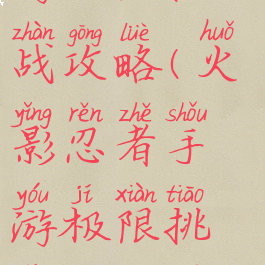 zhàn gōng lüè huǒ
战攻略(火
yǐng rěn zhě shǒu
影忍者手
yóu jí xiàn tiāo
游极限挑